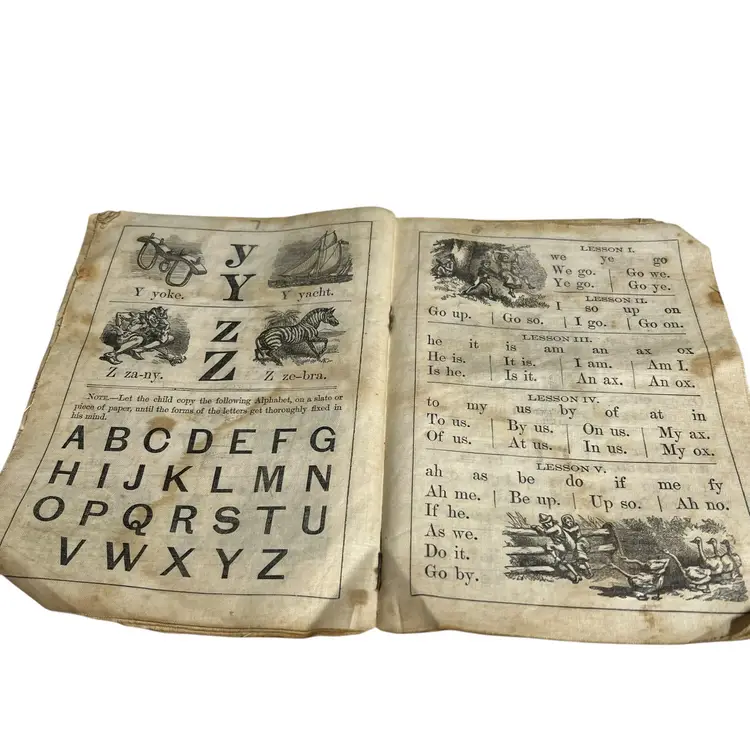 y
Y
Y yoke. Y yacht.
z
Z
Z za-ny. Z ze-bra.
NOTE.—Let the child copy the following Alphabet, on a slate or
piece of paper, until the forms of the letters get thoroughly fixed in
his mind.
A B C D E F G
H I J K L M N
O P Q R S T U
V W X Y Z
LESSON I.
we ye go
We go. Go we.
Ye go. Go ye.
LESSON II.
I so up on
Go up. Go so. I go. Go on.
LESSON III.
he it is am an ax ox
He is. It is. I am. Am I.
Is he. Is it. An ax. An ox.
LESSON IV.
to my us by of at in
To us. By us. On us. My ax.
Of us. At us. In us. My ox.
LESSON V.
ah as be do if me fy
Ah me. Be up. Up so. Ah no.
If he.
As we.
Do it.
Go by.